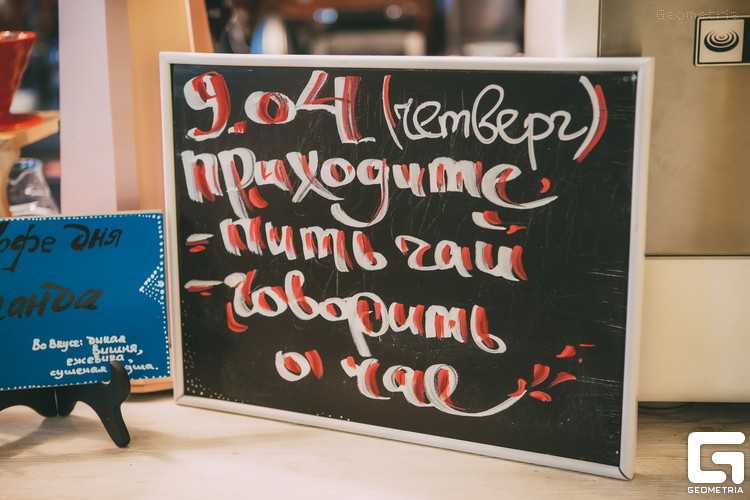 Geometria
9.04 (четверг)
приходите
- пить чай
- говорить
о чае
кофе дня
Во вкусе: дикая
вишня,
ежевика,
сушеная
GEOMETRIA